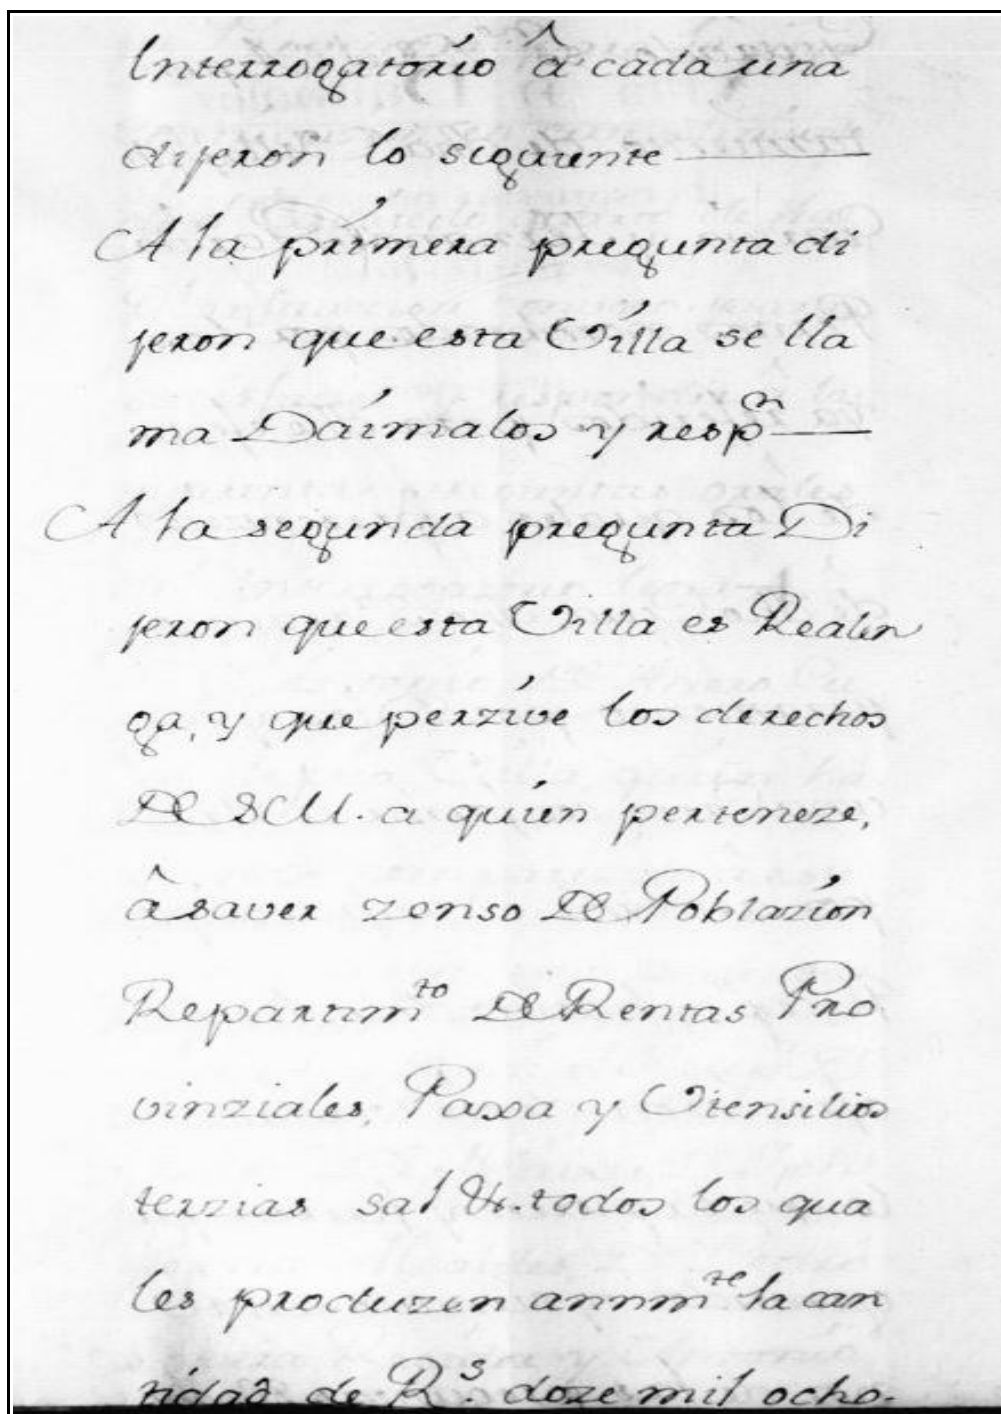 Interrogatorio â cada una
dijeron lo siguiente
A la primera pregunta di
jeron que esta Villa se lla
ma Daimalos y resp.ⁿ
A la segunda pregunta Di
jeron que esta Villa es Realen
ga, y que perzive los derechos
De S M. a quien perteneze,
â saver zenso De Poblazion
Repartimᵗᵒ De Rentas Pro
vinziales, Paxa y Utensilios
terzias sal &. todos los qua
les produzen annmᵗᵉ la can
tidad de Rˢ. doze mil ocho-